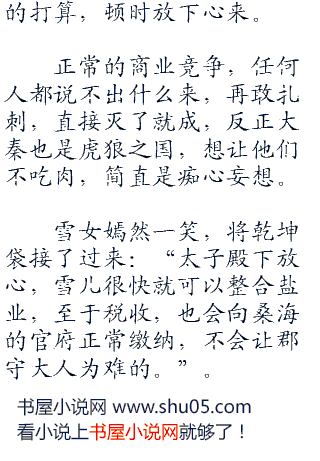 的打算，顿时放下心来。
正常的商业竞争，任何
人都说不出什么来，再敢扎
刺，直接灭了就成，反正大
秦也是虎狼之国，想让他们
不吃肉，简直是痴心妄想。
雪女嫣然一笑，将乾坤
袋接了过来：“太子殿下放
心，雪儿很快就可以整合盐
业，至于税收，也会向桑海
的官府正常缴纳，不会让郡
守大人为难的。”。
书屋小说网 www.shu05.com
看小说上书屋小说网就够了！